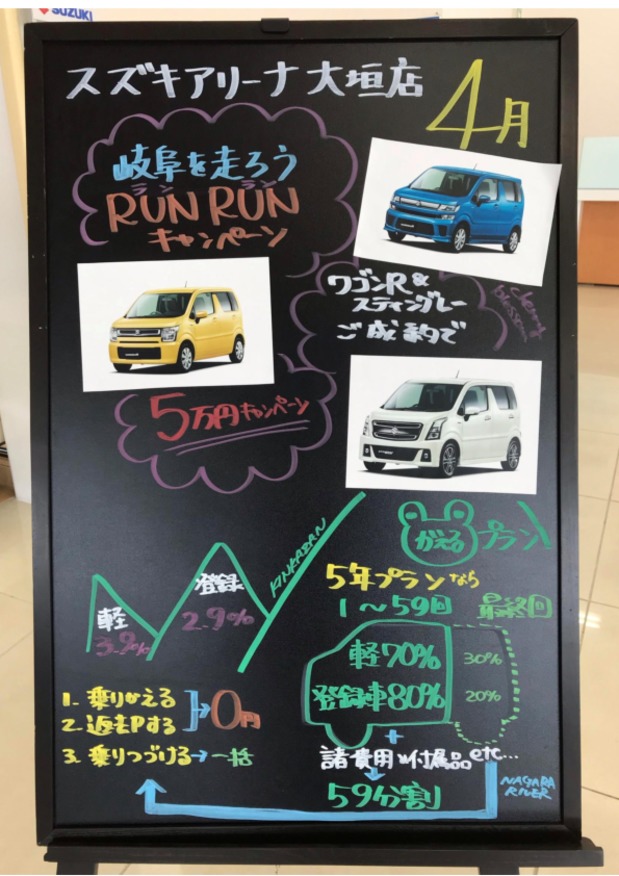 SUZUKI
スズキアリーナ 大垣店
4月
岐阜を走ろう
ラン ラン
RUN RUN
キャンペーン
ワゴンR&
スティングレー
ご成約で
cherry
blossom
5万円キャンペーン
KINKAZAN
かえるプラン
登録
2.9%
軽
3.9%
5年プランなら
1〜59回 最終回
軽70% 30%
登録車80% 20%
1. 乗りかえる
2. 返去Pする
0円
3. 乗りつづける→一括
+
諸費用 付属品etc...
59分割
NAGARA
RIVER